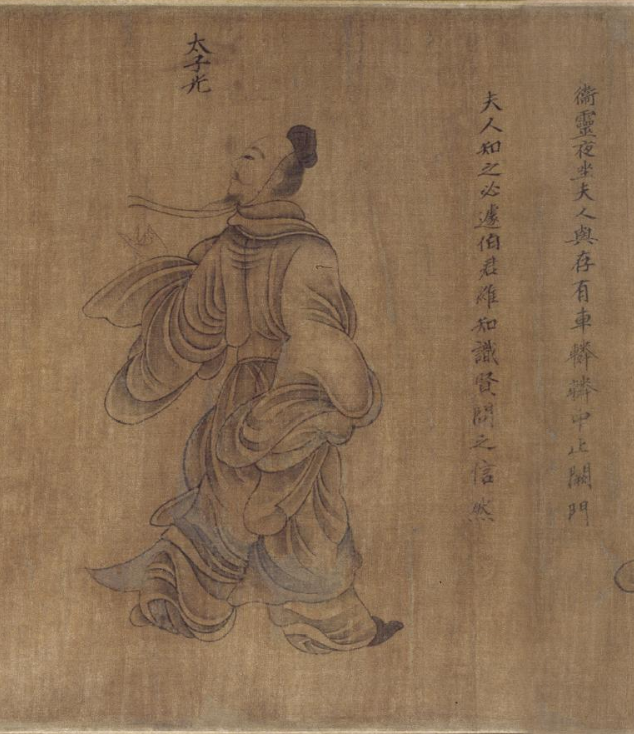 衛靈夜坐夫人與存有車轔轔中止闕門
夫人知之必遽伯君維知識賢問之信然
太子光